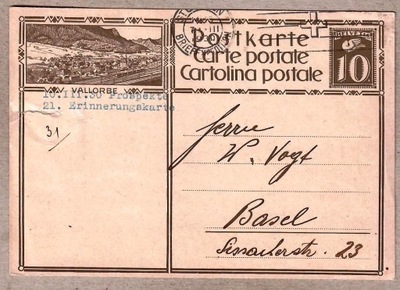 Postkarte
Carte postale
Cartolina postale
HELVETIA
10
VALLORBE
10.III.30 Prospekte
21. Erinnerungskarte
31
Herrn
W. Vogt
Basel
23